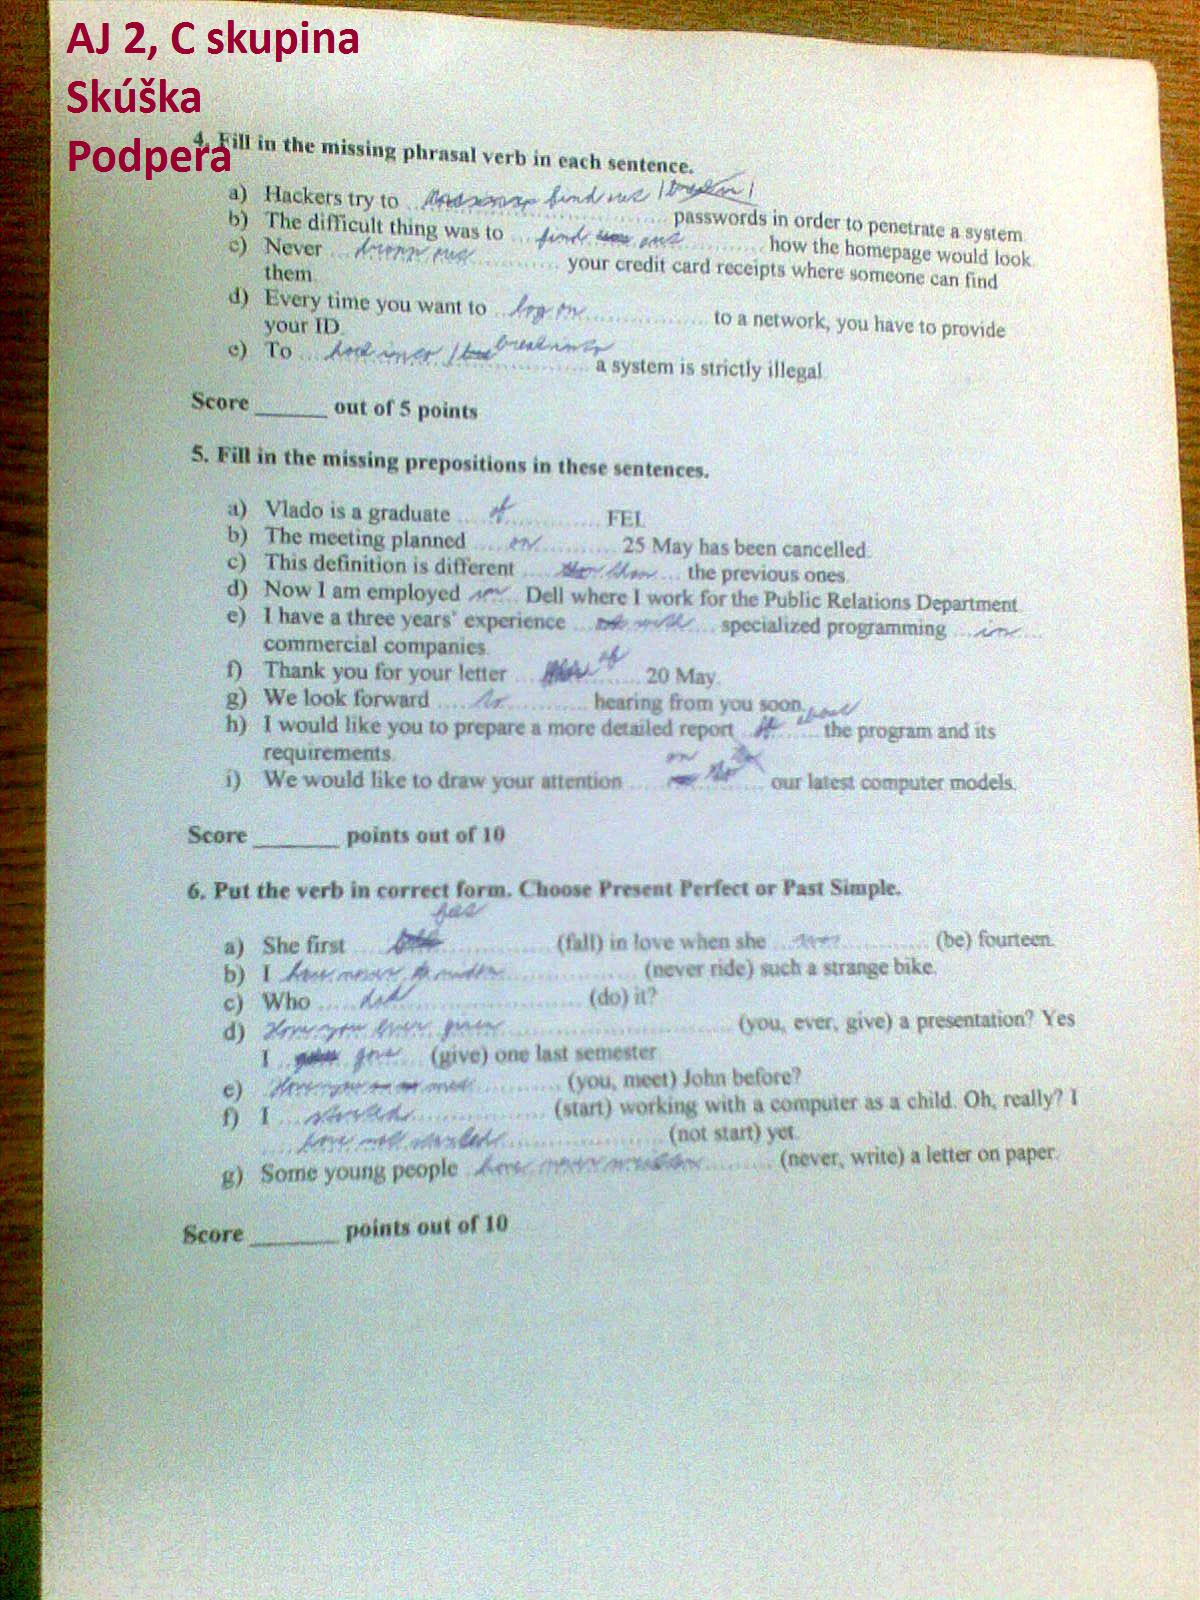 AJ 2, C skupina
Skúška
Podpera
4. Fill in the missing phrasal verb in each sentence.
a) Hackers try to ... find out / break in / ... passwords in order to penetrate a system.
b) The difficult thing was to ... find out ... how the homepage would look.
c) Never ... out ... your credit card receipts where someone can find
them.
d) Every time you want to ... log on ... to a network, you have to provide
your ID.
e) To ... / break into ... a system is strictly illegal.
Score ______ out of 5 points
5. Fill in the missing prepositions in these sentences.
a) Vlado is a graduate ... of ... FEI.
b) The meeting planned ... on ... 25 May has been cancelled.
c) This definition is different ... than ... the previous ones.
d) Now I am employed ... Dell where I work for the Public Relations Department.
e) I have a three years' experience ... with ... specialized programming ... in ...
commercial companies.
f) Thank you for your letter ... of ... 20 May.
g) We look forward ... to ... hearing from you soon.
h) I would like you to prepare a more detailed report ... about ... the program and its
requirements.
i) We would like to draw your attention ... on ... our latest computer models.
Score _______ points out of 10
6. Put the verb in correct form. Choose Present Perfect or Past Simple.
a) She first ... (fall) in love when she ... was ... (be) fourteen.
b) I have never ridden ... (never ride) such a strange bike.
c) Who ... did ... (do) it?
d) Have you ever given ... (you, ever, give) a presentation? Yes
I ... gave ... (give) one last semester.
e) Have you met ... (you, meet) John before?
f) I ... started ... (start) working with a computer as a child. Oh, really? I
... have not started ... (not start) yet.
g) Some young people ... have never written ... (never, write) a letter on paper.
Score _______ points out of 10